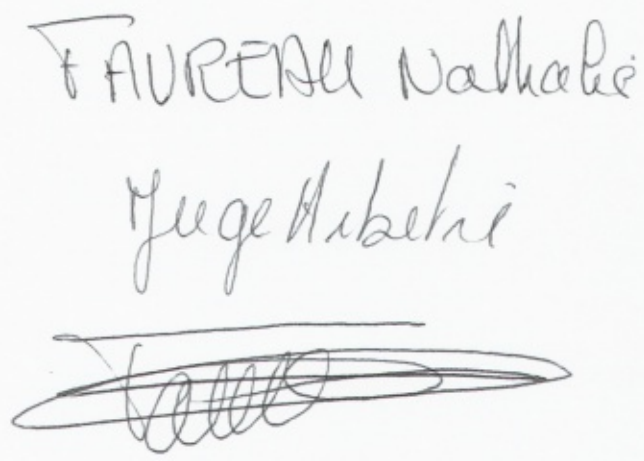 FAUREAU Nathalie
Juge Arbitre